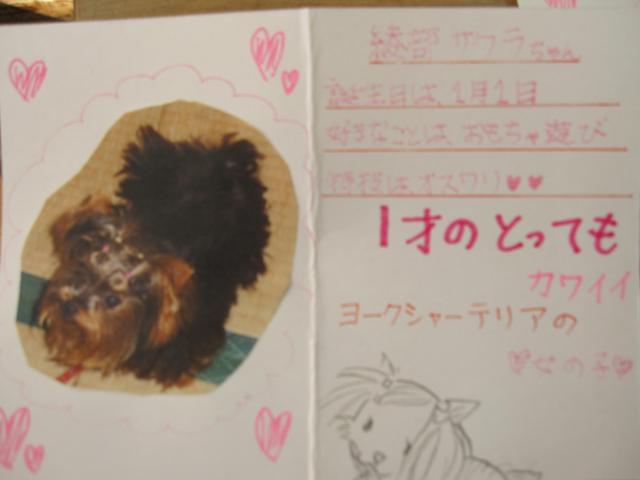 綾部 サクラちゃん
誕生日は、1月1日
好きなことは、おもちゃ遊び
特技は、オスワリ♥♥
1才のとっても
カワイイ
ヨークシャーテリアの
♥女の子♥